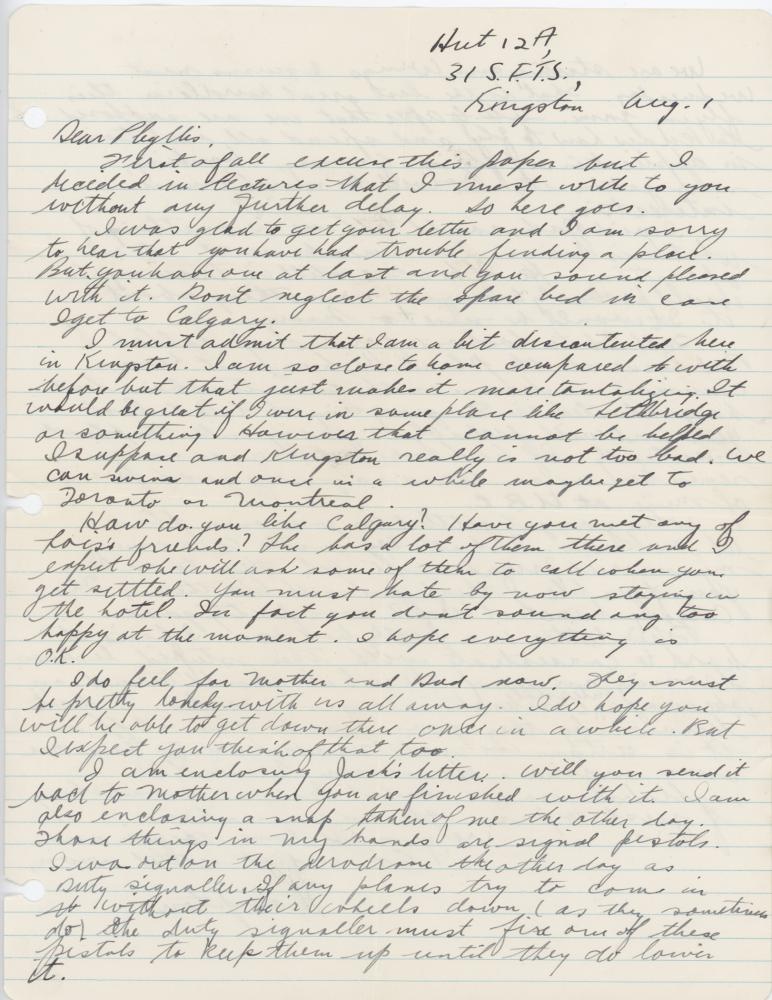 Hut 12A,
31 S.F.T.S.,
Kingston Aug. 1
Dear Phyllis,
First of all excuse this paper but I
decided in lectures that I must write to you
without any further delay. So here goes.
I was glad to get your letter and I am sorry
to hear that you have had trouble finding a place.
But you have one at last and you sound pleased
with it. Don't neglect the spare bed in case
I get to Calgary.
I must admit that I am a bit discontented here
in Kingston. I am so close to home compared to with
before but that just makes it more tantalizing. It
would be great if I were in some place like Lethbridge
or something. However that cannot be helped
I suppose and Kingston really is not too bad. We
can swim and once in a while maybe get to
Toronto or Montreal.
How do you like Calgary? Have you met any of
Lois's friends? She has a lot of them there and I
expect she will ask some of them to call when you
get settled. You must hate by now staying in
the hotel. In fact you don't sound any too
happy at the moment. I hope everything is
O.K.
I do feel for Mother and Dad now. They must
be pretty lonely with us all away. I do hope you
will be able to get down there once in a while. But
I expect you think of that too.
I am enclosing Jack's letter. Will you send it
back to Mother when you are finished with it. I am
also enclosing a snap taken of me the other day.
Those things in my hands are signal pistols.
I was out on the aerodrome the other day as
duty signaller. If any planes try to come in
without their wheels down (as they sometimes
do) the duty signaller must fire one of these
pistols to keep them up until they do lower
it.